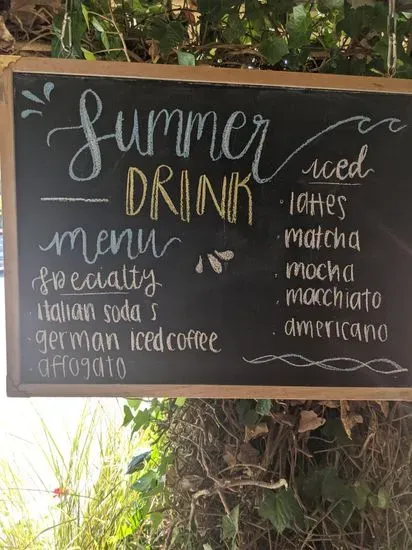 Summer
DRINK
menu
specialty
italian soda s
german iced coffee
affogato
iced
lattes
matcha
mocha
macchiato
americano